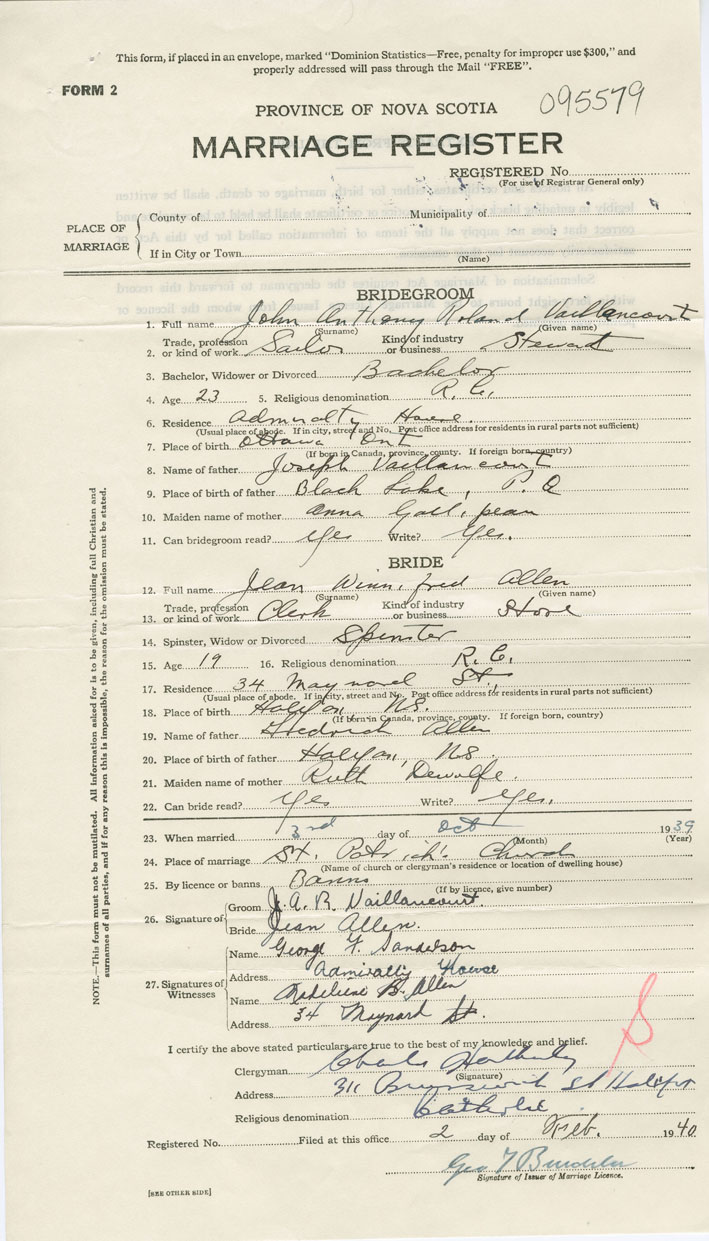 This form, if placed in an envelope, marked "Dominion Statistics—Free, penalty for improper use $300," and
properly addressed will pass through the Mail "FREE".
FORM 2
095579
PROVINCE OF NOVA SCOTIA
MARRIAGE REGISTER
REGISTERED No.
(For use of Registrar General only)
PLACE OF MARRIAGE
County of
Municipality of
If in City or Town
(Name)
BRIDEGROOM
1. Full name John Anthony Roland Vaillancourt
(Surname) (Given name)
2. Trade, profession or kind of work Sailor Kind of industry or business Steward
3. Bachelor, Widower or Divorced Bachelor
4. Age 23 5. Religious denomination R.C.
6. Residence Admiralty House.
(Usual place of abode. If in city, street and No. Post office address for residents in rural parts not sufficient)
7. Place of birth Ottawa Ont
(If born in Canada, province, county. If foreign born, country)
8. Name of father Joseph Vaillancourt
9. Place of birth of father Black Lake, P.Q
10. Maiden name of mother Anna
11. Can bridegroom read? Yes Write? Yes.
BRIDE
12. Full name Jean Winnifred Allen
(Surname) (Given name)
13. Trade, profession or kind of work Clerk Kind of industry or business Store
14. Spinster, Widow or Divorced Spinster
15. Age 19 16. Religious denomination R.C.
17. Residence 34 Maynard St.,
(Usual place of abode. If in city, street and No. Post office address for residents in rural parts not sufficient)
18. Place of birth Halifax NS.
(If born in Canada, province, county. If foreign born, country)
19. Name of father Fredrick Allen
20. Place of birth of father Halifax, NS
21. Maiden name of mother Ruth Dewolfe.
22. Can bride read? Yes Write? Yes.
23. When married 3rd day of Oct 1939
(Month) (Year)
24. Place of marriage St. Patrick's Church
(Name of church or clergyman's residence or location of dwelling house)
25. By licence or banns Banns
(If by licence, give number)
26. Signature of
Groom J. A. R. Vaillancourt.
Bride Jean Allen.
27. Signatures of Witnesses
Name George F. Sanderson
Address Admiralty House
Name Madeliene B. Allen
Address 34 Maynard St.
I certify the above stated particulars are true to the best of my knowledge and belief.
Clergyman Charles
(Signature)
Address 311 Brunswick St Halifax
Religious denomination Catholic
Registered No. Filed at this office 2 day of Feb. 1940
Geo
Signature of Issuer of Marriage Licence.
[SEE OTHER SIDE]
NOTE.—This form must not be mutilated. All information asked for is to be given, including full Christian and
surnames of all parties, and if for any reason this is impossible, the reason for the omission must be stated.